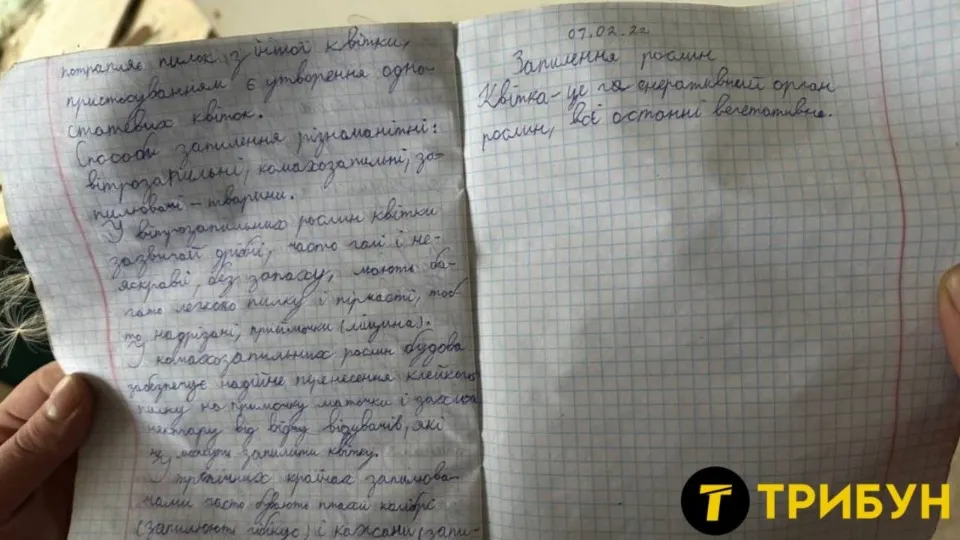 потрапляє пилок з іншої квітки,
пристосуванням є утворення одно-
статевих квіток.
Способи запилення різноманітні:
вітрозапильні, комахозапильні, за-
пилювачі – тварини.
У вітрозапильних рослин квітки
зазвичай дрібні, часто голі і не-
яскраві, без запаху, мають ба-
гато легкого пилку і пірчасті, тоб
то надрізані, приймочки (ліщина).
У комахозапильних рослин будова
забезпечує надійне перенесення клейкого
пилку на примочку маточки і
нектару від відвідувачів, які
не можуть запилити квітку.
У тропічних країнах запилюва-
чами часто бувають птахи колібрі
(запилюють) і кажани (запи-
07.02.22
Запилення рослин
Квітка – це генеративний орган
рослин, всі останні вегетативні.
ТРИБУН